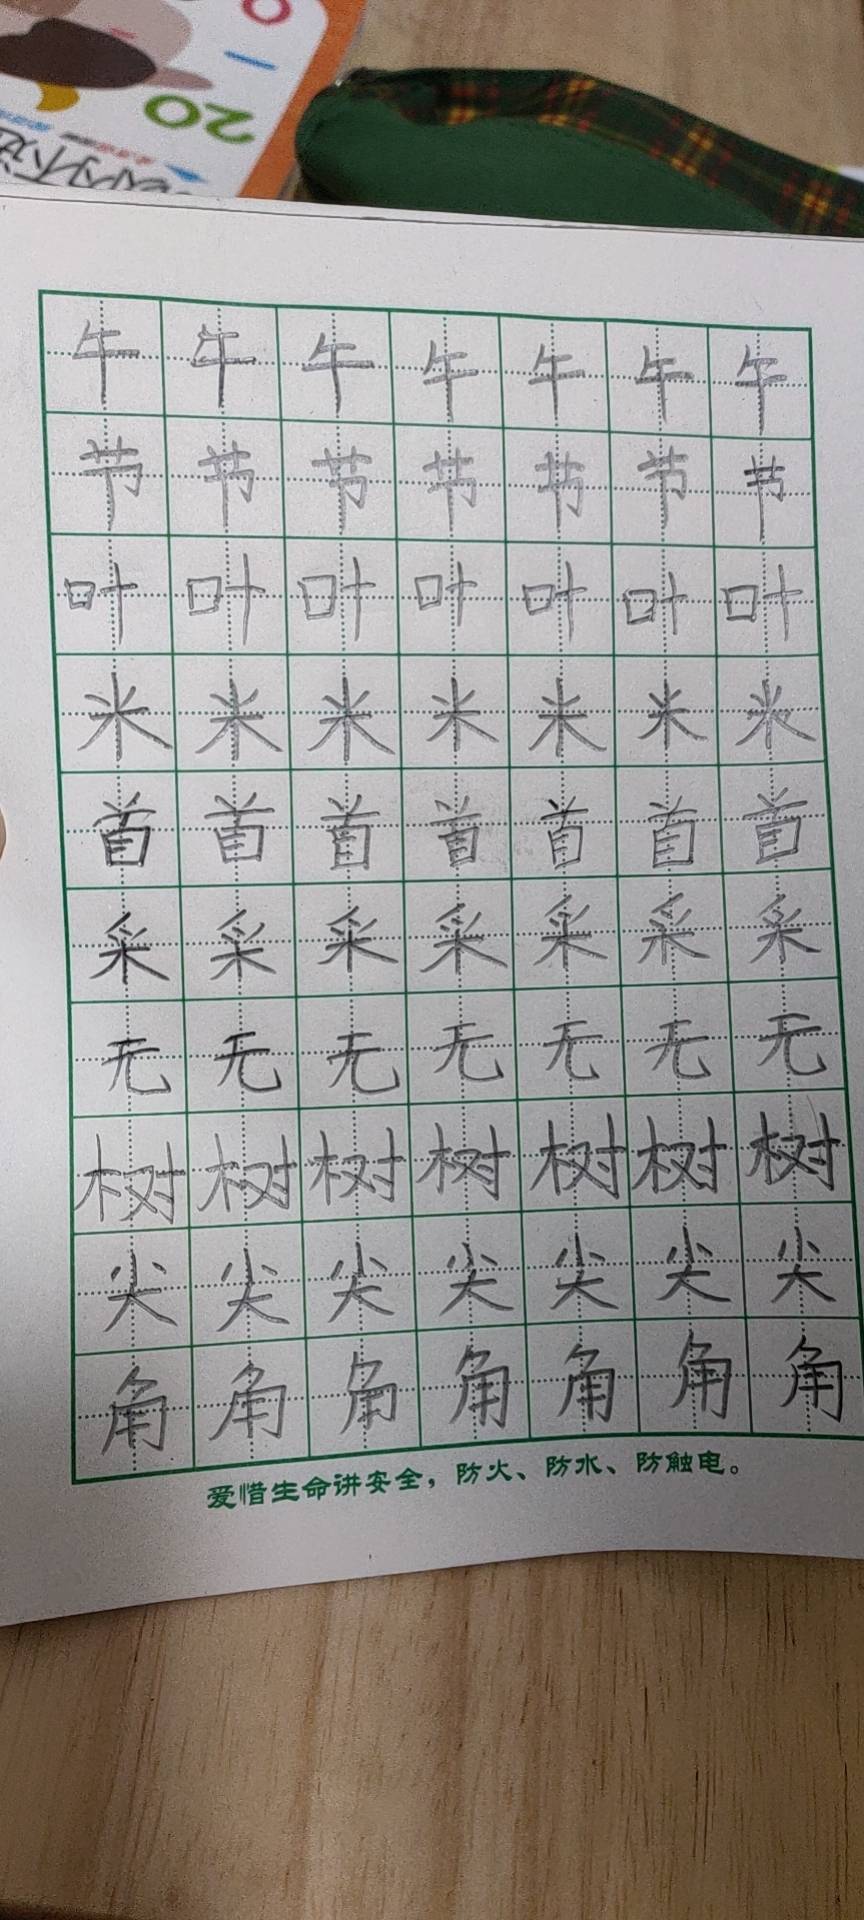 20
午 午 午 午 午 午 午
节 节 节 节 节 节 节
叶 叶 叶 叶 叶 叶 叶
米 米 米 米 米 米 米
首 首 首 首 首 首 首
采 采 采 采 采 采 采
无 无 无 无 无 无 无
树 树 树 树 树 树 树
尖 尖 尖 尖 尖 尖 尖
角 角 角 角 角 角 角
爱惜生命讲安全，防火、防水、防触电。